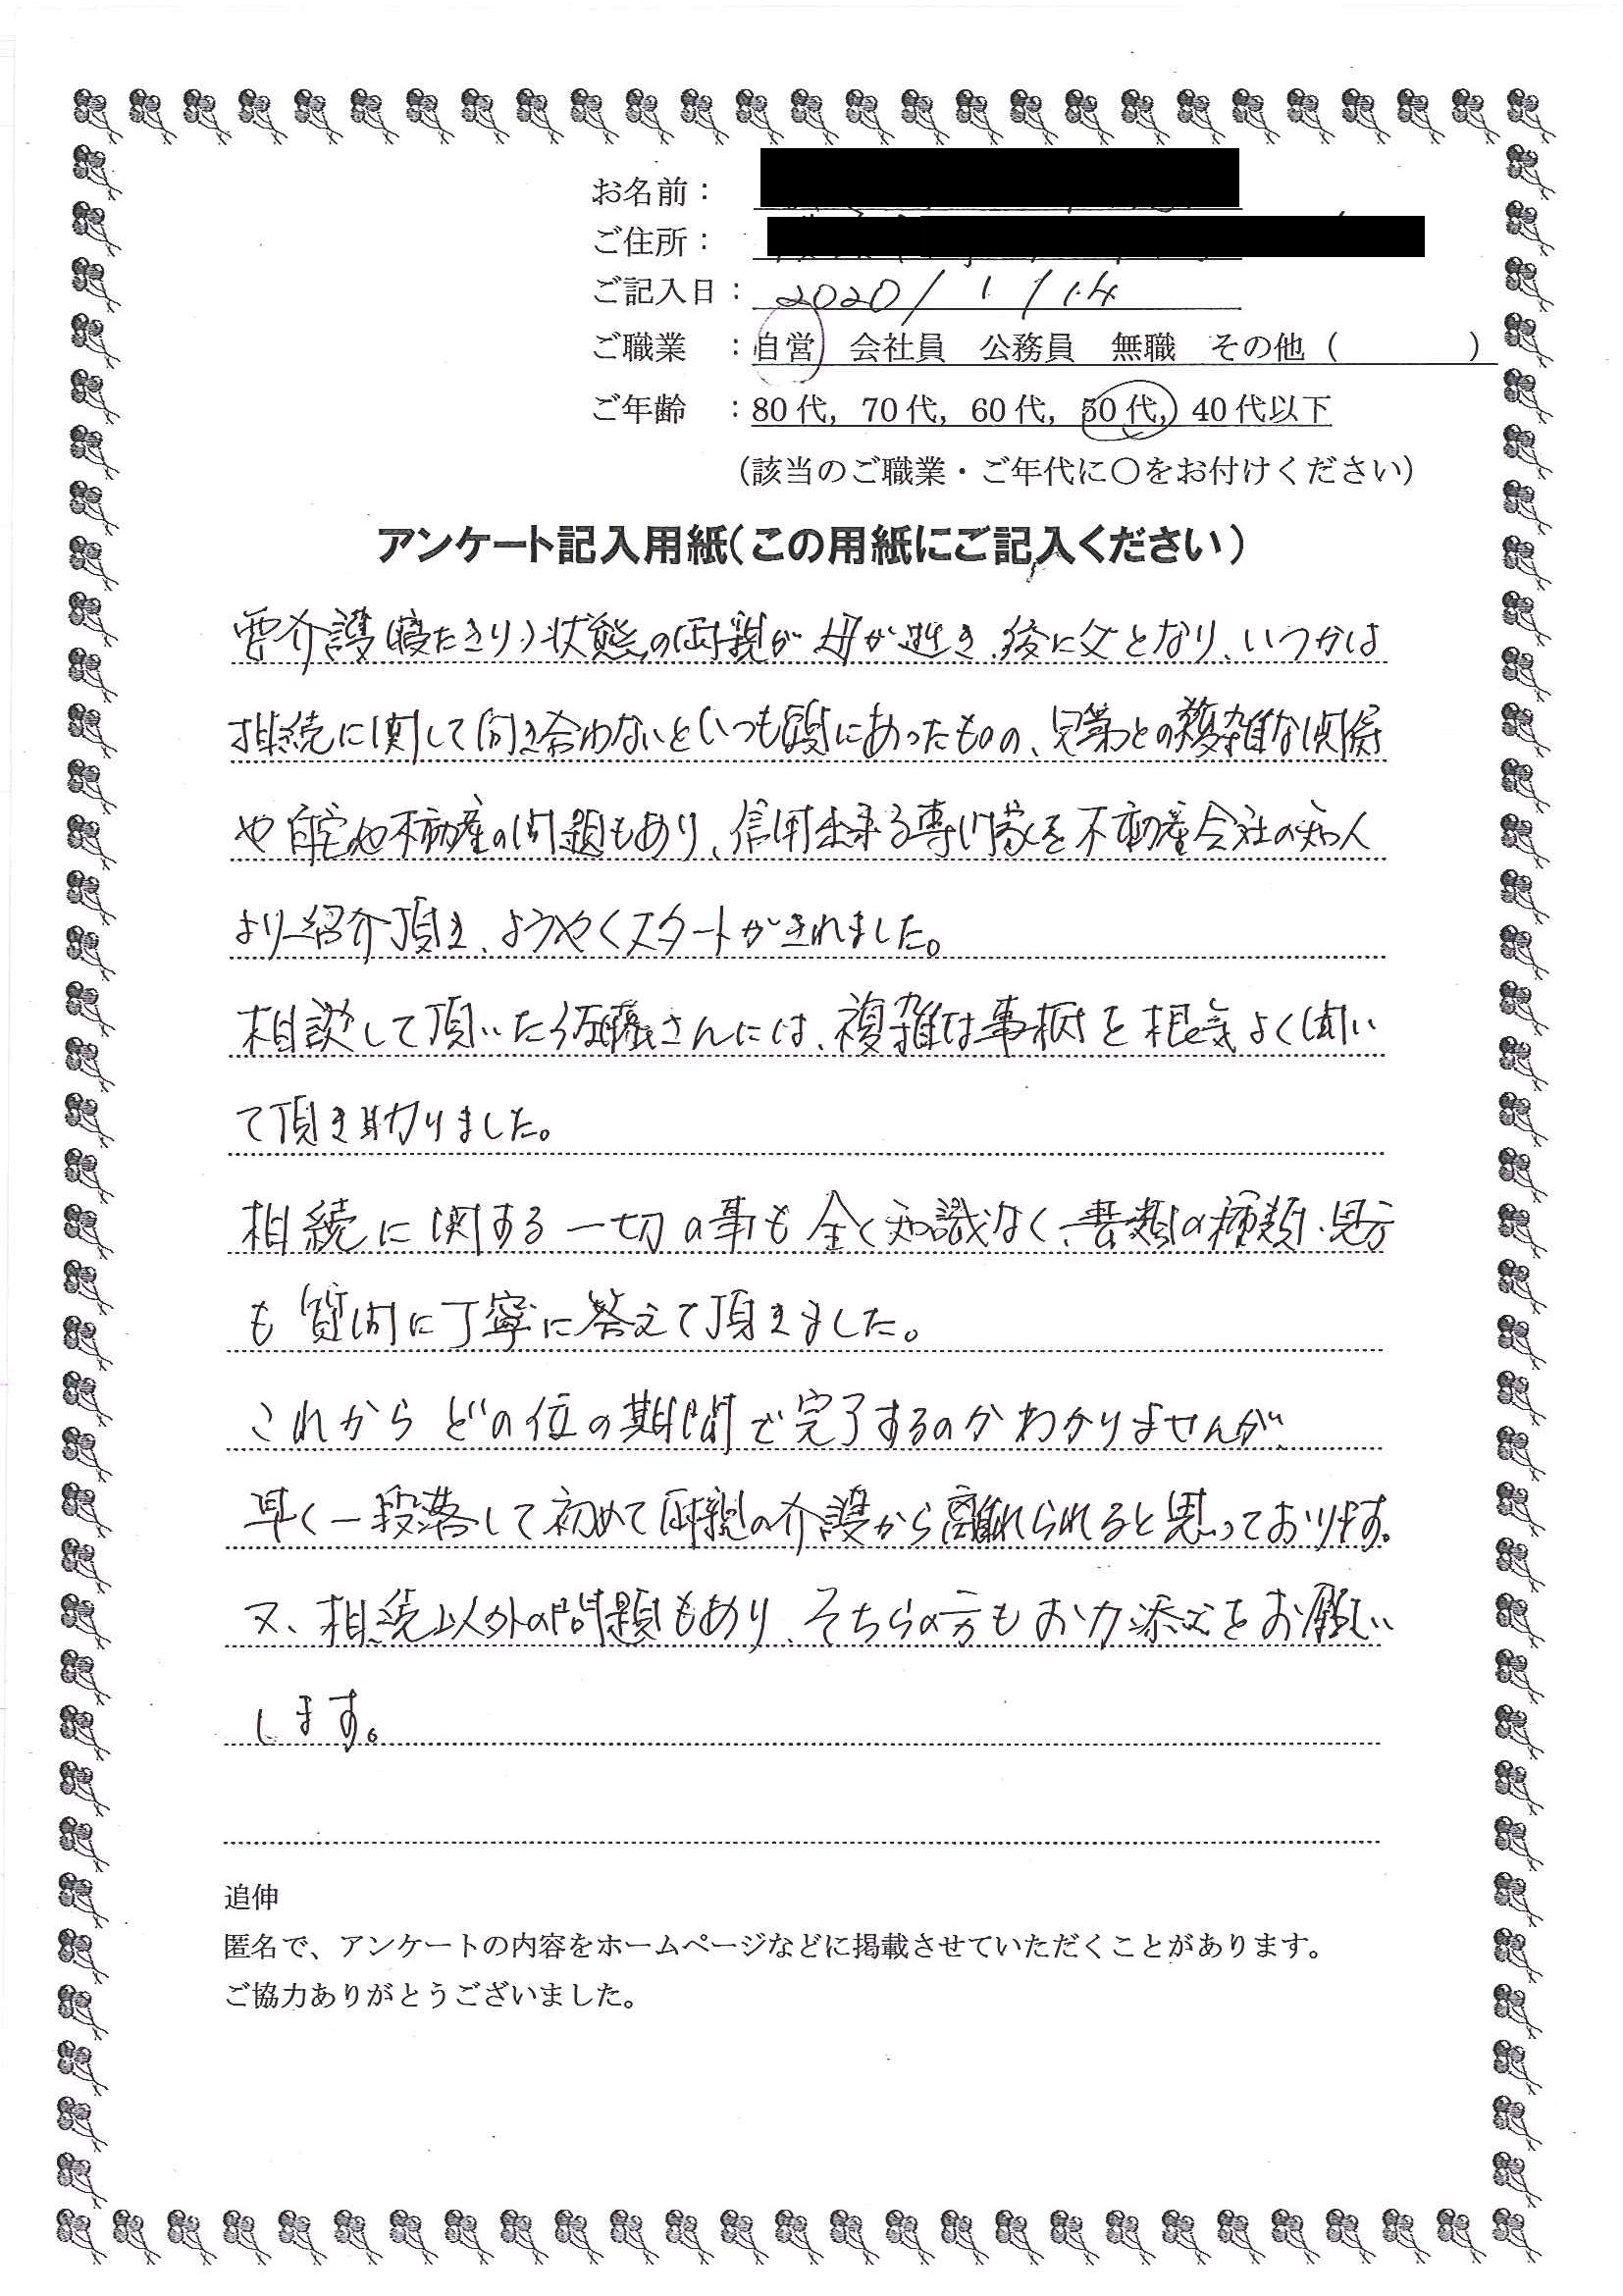 お名前：
ご住所：
ご記入日： 2020/1/14
ご職業 ：自営 会社員 公務員 無職 その他（ ）
ご年齢 ：80代，70代，60代，50代，40代以下
（該当のご職業・ご年代に〇をお付けください）
アンケート記入用紙（この用紙にご記入ください）
要介護（寝たきり）状態の両親が母が逝き、後に父となり、いつかは
相続に関して向き合わないといつも頭にあったものの、兄弟との複雑な関係
や自宅や不動産の問題もあり、信用出来る専門家を不動産会社の知人
より紹介頂き、ようやくスタートがきれました。
相談して頂いた佐藤さんには、複雑な事柄を根気よく聞い
て頂き助りました。
相続に関する一切の事も全く知識なく、書類の種類、見方
も質問に丁寧に答えて頂きました。
これからどの位の期間で完了するのかわかりませんが、
早く一段落して初めて両親の介護から離れられると思っております。
又、相続以外の問題もあり、そちらの方もお力添えをお願い
します。
追伸
匿名で、アンケートの内容をホームページなどに掲載させていただくことがあります。
ご協力ありがとうございました。